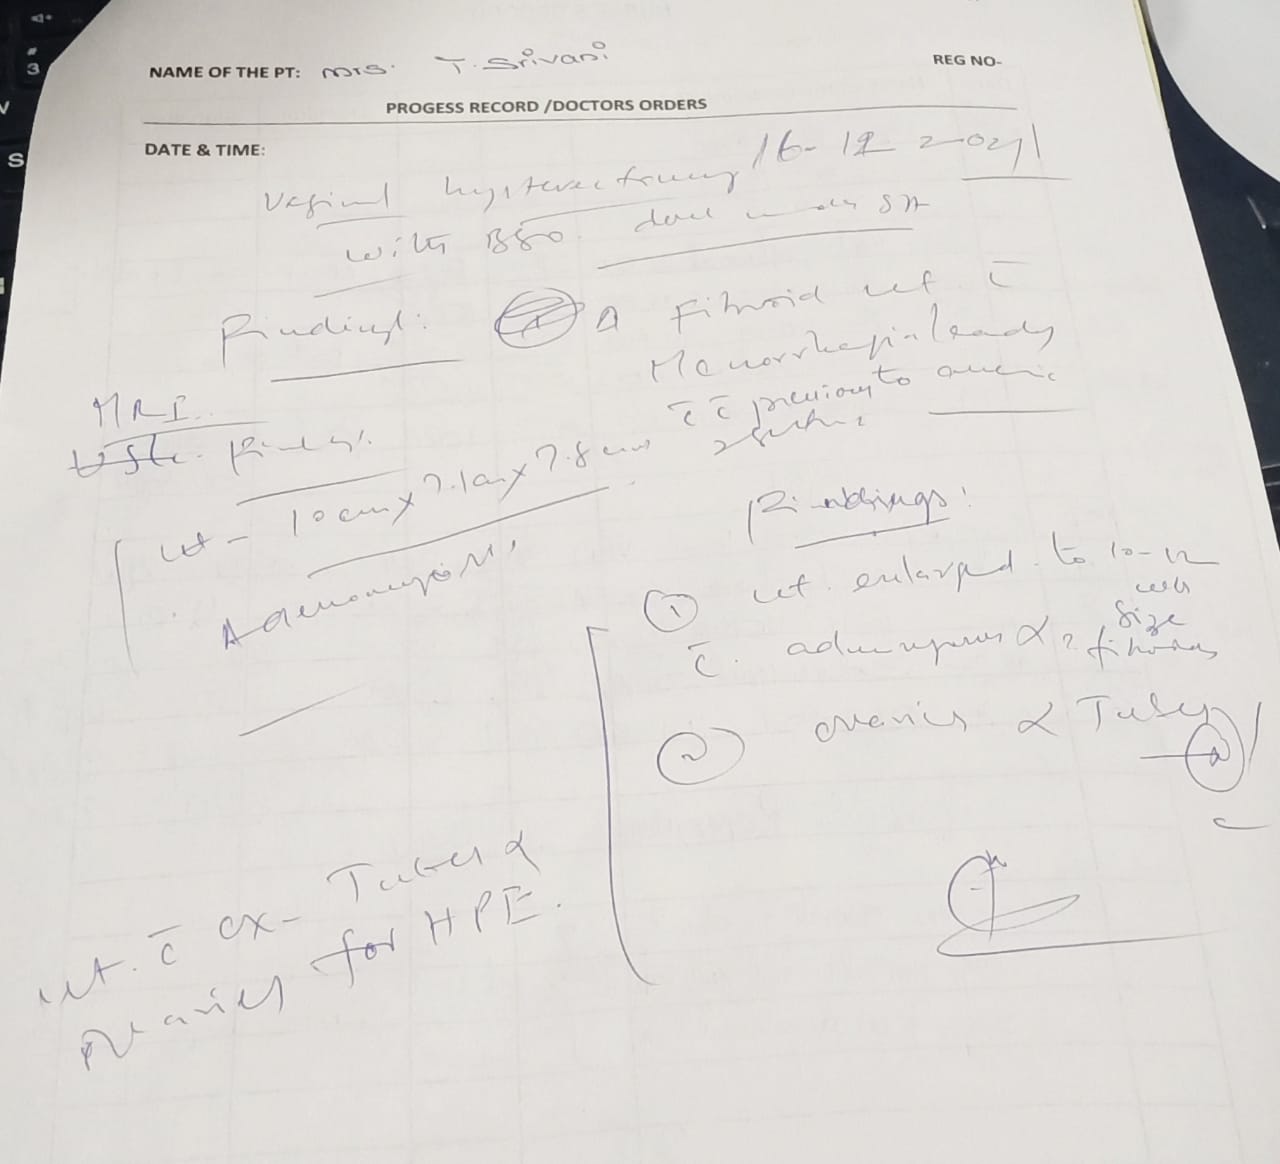 NAME OF THE PT: Mrs. T. Srivani
REG NO-
PROGESS RECORD /DOCTORS ORDERS
DATE & TIME:
16-12 2021
Vaginal hysterectomy
with BSO. done under SA
Findings: Δ Fibroid ut c̄
Menorrhagia leading
to anemic
c̄ c̄ previous
2
MRI
Usg. Findings.
ut - 10cm x 7.1cm x 7.8 cms
Adenomyosis
Findings:
① ut. enlarged to 10-12
wks
size
c̄. adenomyosis & ? fibroids
② ovaries & Tubes
N
ut. c̄ cx- Tubes &
ovaries for HPE.